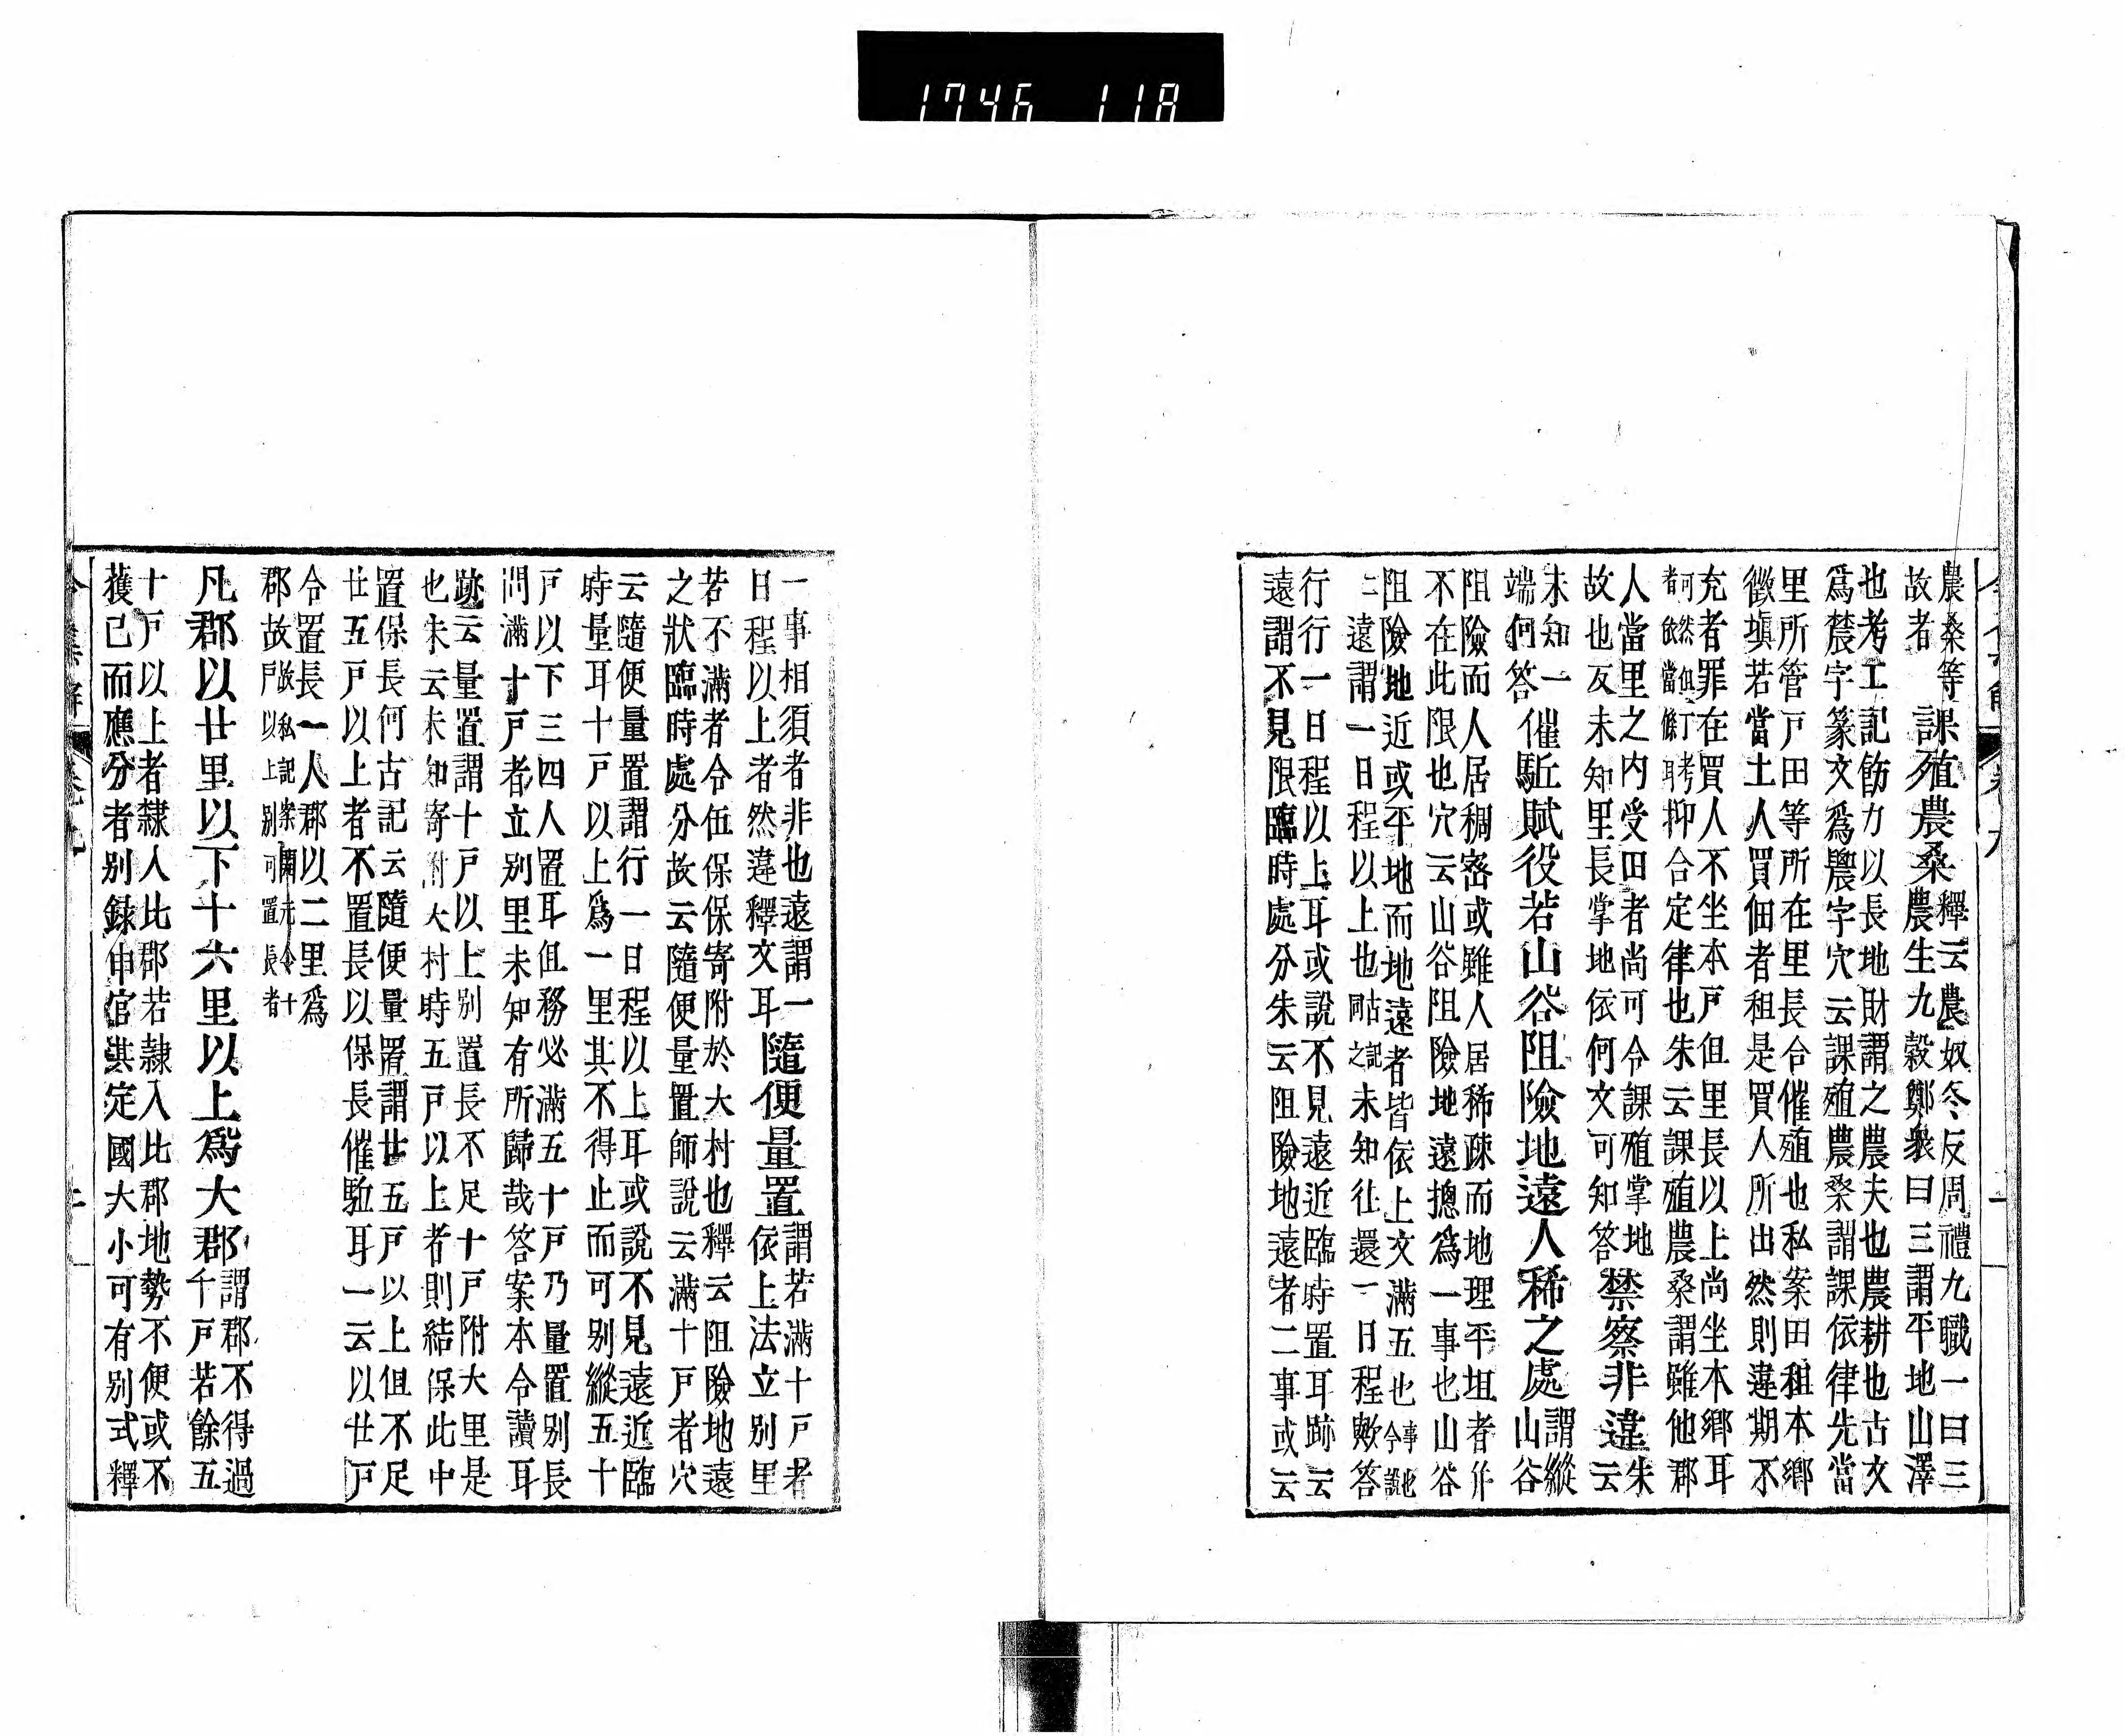 1746 118
農桑等
故者
課殖農桑
釋云農奴冬反周禮九職一曰三
農生九穀鄭衆曰三謂平地山澤
也考工記飭力以長地財謂之農夫也農耕也古文
爲莀字篆文爲農字穴云課殖農桑謂課依律先當
里所管戸田等所在里長合催殖也私案田租本鄉
徵塡若當土人買佃者租是買人所出然則違期不
充者罪在買人不坐本戸但里長以上尚坐本鄉耳
可然但丁考
者依當條耳
抑合定律也朱云課殖農桑謂雖他郡
人當里之内受田者尚可令課殖掌地
故也反未知里長掌地依何文可知答
禁察非違
朱
云
未知一
端何答
催駈賦役若山谷阻險地遠人稀之處
謂縱
山谷
阻險而人居稠密或雖人居稀疎而地理平坦者併
不在此限也穴云山谷阻險地遠揔爲一事也山谷
阻險地近或平地而地遠者皆依上文滿五也
事也
令説
遠謂一日程以上也
未知往還一日程歟答
行行一日程以上耳或説不見遠近臨時置耳跡云
遠謂不見限臨時處分朱云阻險地遠者二事或云
一事相須者非也遠謂一
日程以上者然違釋文耳
隨便量置
謂若滿十戸者
依上法立別里
若不滿者令伍保保寄附於大村也釋云阻險地遠
之狀臨時處分故云隨便量置師說云滿十戸者穴
云隨便量置謂行一日程以上耳或說不見遠近臨
時量耳十戸以上爲一里其不得止而可別縱五十
戸以下三四人置耳但務必滿五十戸乃量置別長
問滿十戸者立別里未知有所歸哉答案本令讀耳
跡云量置謂十戸以上別置長不足十戸附大里是
也朱云未知寄附大村時五戸以上者則結保此中
置保長何古記云隨便量置謂廿五戸以上但不足
廿五戸以上者不置長以保長催駈耳一云以廿戸
令置長一人郡以二里爲
郡故
故私記案開元令十
戸以上別可置長者
凡郡以廿里以下十六里以上爲大郡
謂郡不得過
千戸若餘五
十戸以上者隸入比郡若隸入比郡地勢不便或不
獲已而應分者別錄申官其定國大小可有別式釋